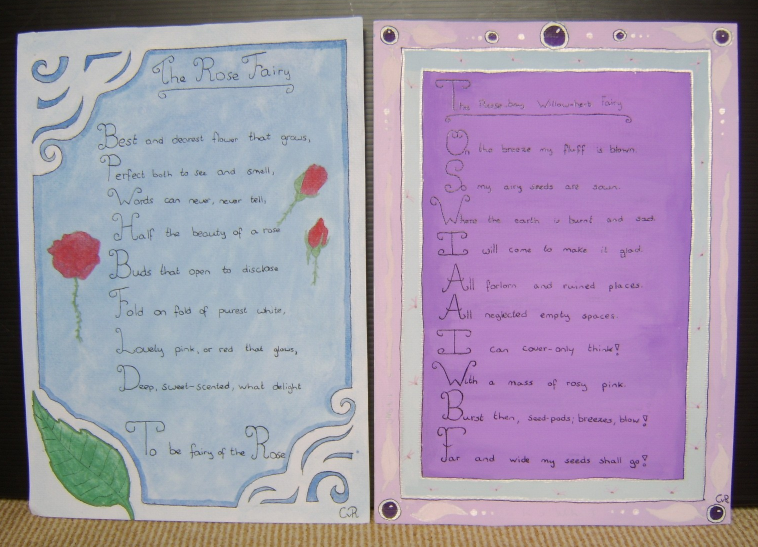 The Rose Fairy
Best and dearest flower that grows,
Perfect both to see and smell,
Words can never, never tell,
Half the beauty of a rose
Buds that open to disclose
Fold on fold of purest white,
Lovely pink, or red that glows,
Deep, sweet-scented, what delight
To be fairy of the Rose
CvR
The Rose-bay Willow-herb Fairy
On the breeze my fluff is blown.
So my airy seeds are sown.
Where the earth is burnt and sad.
I will come to make it glad.
All forlorn and ruined places.
All neglected empty spaces.
I can cover-only think!
With a mass of rosy pink.
Burst then, seed-pods; breezes, blow!
Far and wide my seeds shall go!
CvR